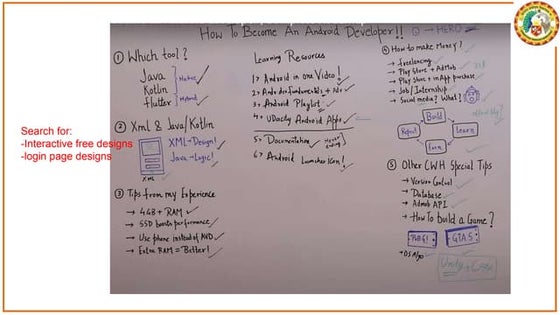 How To Become An Android Developer!!
0 → HERO
Search for:
-Interactive free designs
-login page designs
① Which tool?
Java
Kotlin
Flutter
Native
Hybrid
② Xml & Java/Kotlin
XML → Design!
Java → Logic!
XML
③ Tips from my Experience
→ 4GB+ RAM
→ SSD boosts performance
→ Use phone instead of AVD
→ Extra RAM = Better!
Learning Resources
1> Android in one Video!
2> Android fundamentals + Adv
3> Android Playlist
4> Udacity Android Apps
5> Documentation
Never Ending
6> Android Launcher Icon!
④ How to make Money?
→ freelancing
→ Play Store + AdMob
→ Play Store + in App purchase
→ Job / Internship
→ Social media? What?
Build
Learn
Earn
Repeat
⑤ Other CWH Special Tips
→ Version Control
→ Database
→ Admob API
→ How To build a Game?
PUBG!
GTA 5
Unity + C##